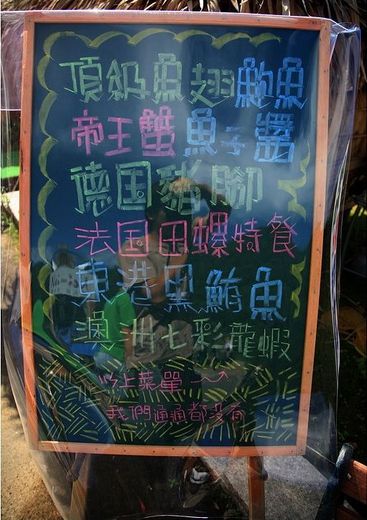 頂級魚翅鮑魚
帝王蟹魚子醬
德国豬腳
法国田螺特餐
東港黑鮪魚
澳洲七彩龍蝦
以上菜單
我們通通都沒有